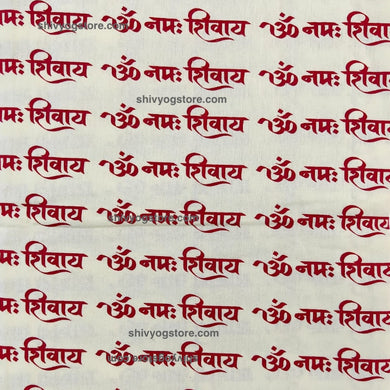 नमः शिवाय ॐ नमः शिवाय ॐ नमः
shivyogstore.com
नमः शिवाय ॐ नमः शिवाय ॐ नमः शिवाय
shivyogstore.com
नमः शिवाय ॐ नमः शिवाय ॐ नमः शिवाय
नमः शिवाय ॐ नमः शिवाय ॐ नमः शिवाय
नमः शिवाय ॐ नमः शिवाय ॐ नमः शिवाय
नमः शिवाय ॐ नमः शिवाय ॐ नमः शिवाय
नमः शिवाय ॐ नमः शिवाय ॐ नमः शिवाय
shivyogstore.com
नमः शिवाय ॐ नमः शिवाय ॐ नमः शिवाय